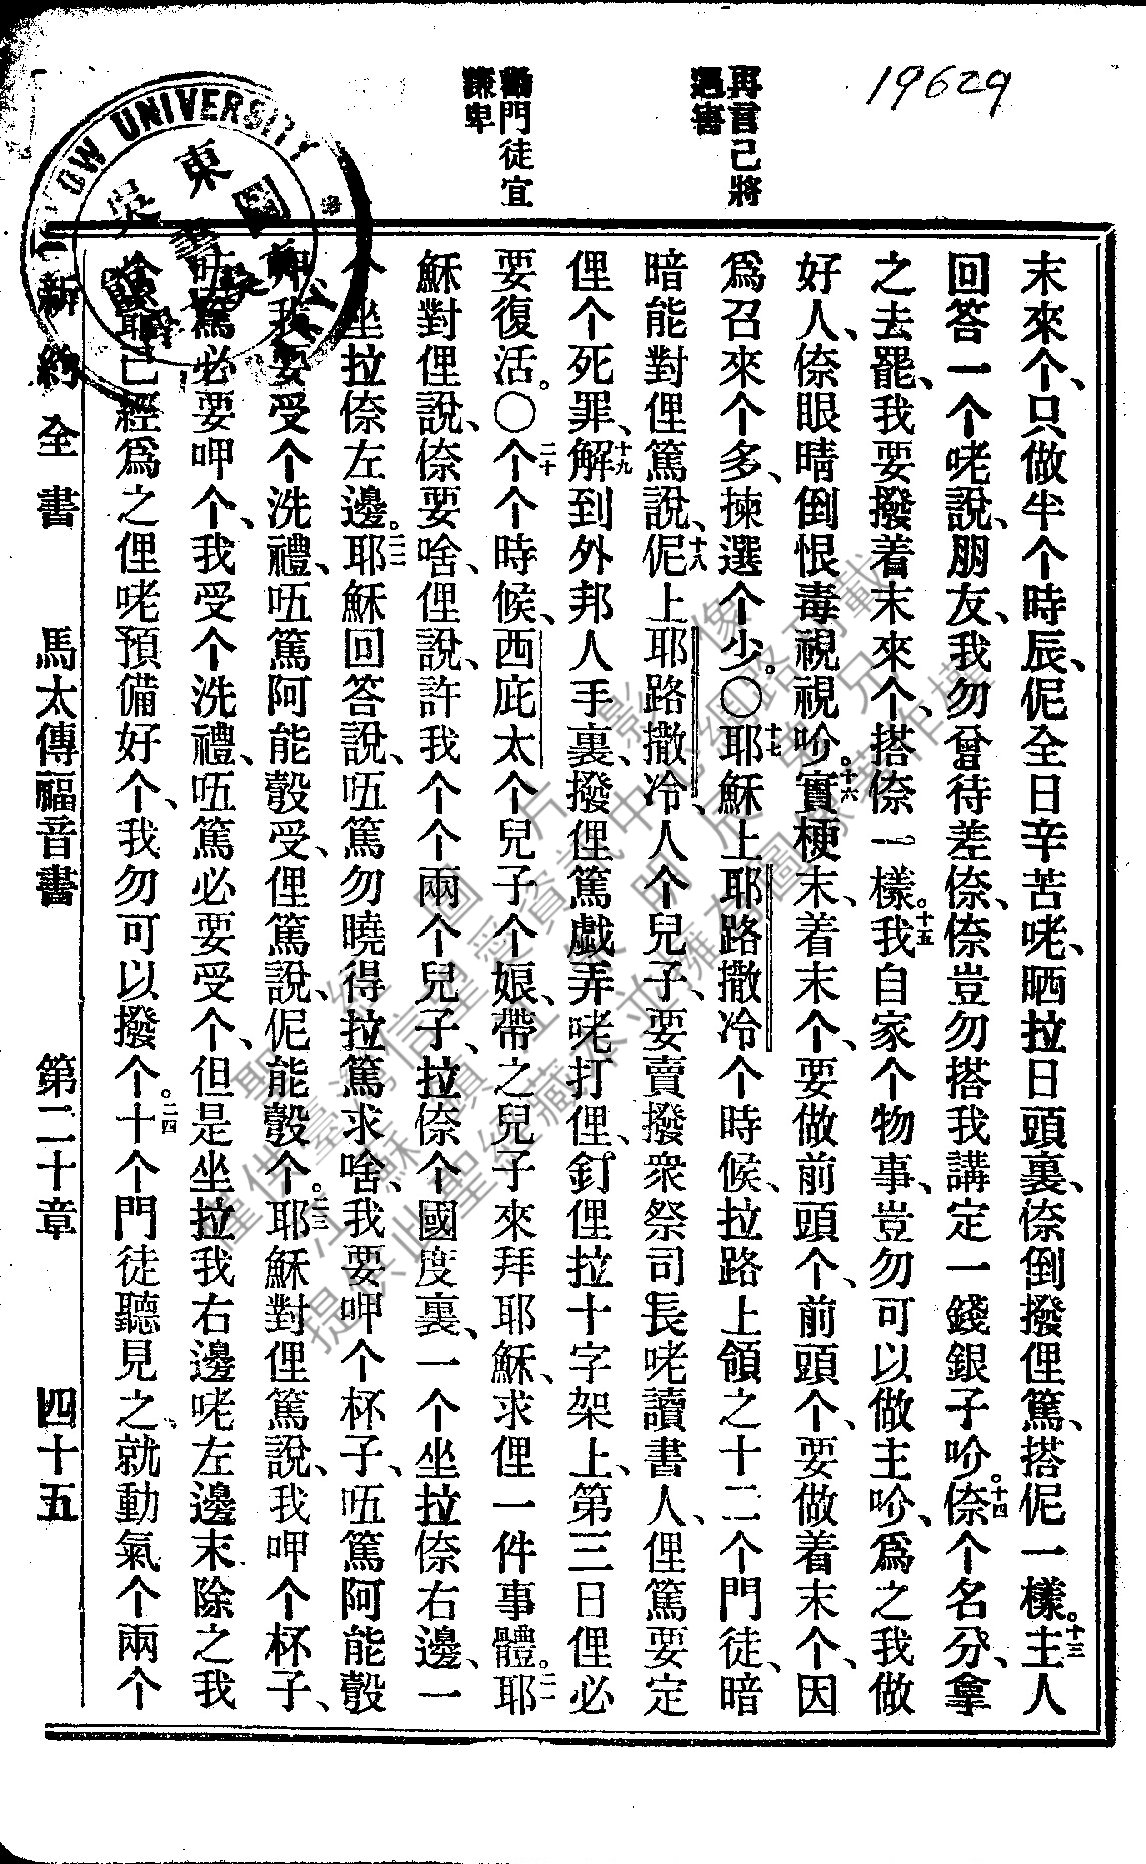 19629
再言己將
遇害
勸門徒宜
謙卑
末來个、只做半个時辰、伲全日辛苦咾、晒拉日頭裏、倷倒撥俚篤、搭伲一樣。十三主人
回答一个咾說、朋友、我勿曾待差倷、倷豈勿搭我講定一錢銀子吤。十四倷个名分、拿
之去罷、我要撥着末來个、搭倷一樣。十五我自家个物事、豈勿可以做主吤、爲之我做
好人、倷眼睛倒恨毒視視吤。十六實梗末、着末个、要做前頭个、前頭个、要做着末个、因
爲召來个多、揀選个少。〇十七耶穌上耶路撒冷个時候、拉路上領之十二个門徒、暗
暗能對俚篤說、十八伲上耶路撒冷、人个兒子、要賣撥衆祭司長咾讀書人、俚篤要定
俚个死罪、十九解到外邦人手裏、撥俚篤戲弄咾打俚、釘俚拉十字架上、第三日俚必
要復活。〇二十个个時候、西庇太个兒子个娘、帶之兒子來拜耶穌、求俚一件事體。二一耶
穌對俚說、倷要啥、俚說、許我个个兩个兒子、拉倷个國度裏、一个坐拉倷右邊、一
个坐拉倷左邊。二二耶穌回答說、㕶篤勿曉得拉篤求啥、我要呷个杯子、㕶篤阿能彀
呷、我要受个洗禮、㕶篤阿能彀受、俚篤說、伲能彀个。二三耶穌對俚篤說、我呷个杯子、
㕶篤必要呷个、我受个洗禮、㕶篤必要受个、但是坐拉我右邊咾左邊末、除之我
个爺已經爲之俚咾預備好个、我勿可以撥个。二四十个門徒聽見之、就動氣个兩个
新約全書 馬太傳福音書 第二十章 四十五
OW UNIVERSITY
東吳
聖經 圖片影像
僅供臺灣信望愛資訊中心網路刊載